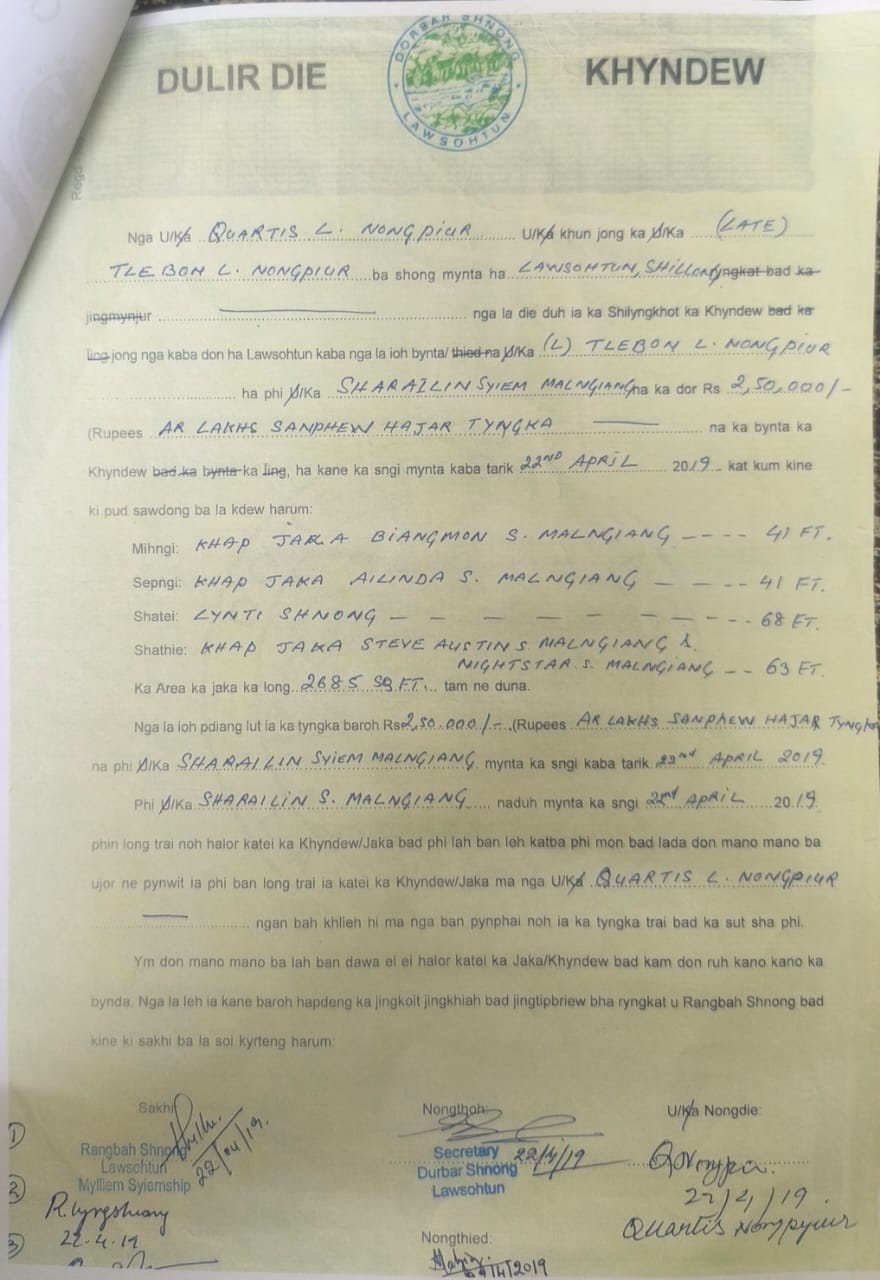 DORBAR SHNONG
LAWSOHTUN
DULIR DIE KHYNDEW
Regd
Nga U/Ka QUARTIS L. NONGPIUR U/Ka khun jong ka U/Ka (LATE)
TLEBON L. NONGPIUR ba shong mynta ha LAWSOHTUN, SHILLONG ryngkat bad ka
jingmynjur nga la die duh ia ka Shilyngkhot ka Khyndew bad ka
ling jong nga kaba don ha Lawsohtun kaba nga la ioh bynta/ thied na U/Ka (L) TLEBON L. NONGPIUR
ha phi U/Ka SHARAILIN SYIEM MALNGIANG na ka dor Rs 2,50,000/-
(Rupees AR LAKHS SANPHEW HAJAR TYNGKA na ka bynta ka
Khyndew bad ka bynta ka ling, ha kane ka sngi mynta kaba tarik 22ND APRIL 2019 kat kum kine
ki pud sawdong ba la kdew harum:
Mihngi: KHAP JAKA BIANGMON S. MALNGIANG ---- 41 FT.
Sepngi: KHAP JAKA AILINDA S. MALNGIANG - - -- 41 FT.
Shatei: LYNTI SHNONG - - - - - - - - -- 68 FT.
Shathie: KHAP JAKA STEVE AUSTIN S. MALNGIANG &
NIGHTSTAR. S. MALNGIANG -- 63 FT.
Ka Area ka jaka ka long 2685 SQ FT. tam ne duna.
Nga la ioh pdiang lut ia ka tyngka baroh Rs 2,50.000/- (Rupees AR LAKHS SANPHEW HAJAR TYNGKA
na phi U/Ka SHARAILIN SYIEM MALNGIANG mynta ka sngi kaba tarik 22nd APRIL 2019
Phi U/Ka SHARAILIN S. MALNGIANG naduh mynta ka sngi 22nd APRIL 2019
phin long trai noh halor katei ka Khyndew/Jaka bad phi lah ban leh katba phi mon bad lada don mano mano ba
ujor ne pynwit ia phi ban long trai ia katei ka Khyndew/Jaka ma nga U/Ka QUARTIS L. NONGPIUR
ngan bah khlieh hi ma nga ban pynphai noh ia ka tyngka trai bad ka sut sha phi.
Ym don mano mano ba lah ban dawa ei ei halor katei ka Jaka/Khyndew bad kam don ruh kano kano ka
bynda. Nga la leh ia kane baroh hapdeng ka jingkoit jingkhiah bad jingtipbriew bha ryngkat u Rangbah Shnong bad
kine ki sakhi ba la soi kyrteng harum:
Sakhi
1)
22/04/19.
Rangbah Shnong
Lawsohtun
Mylliem Syiemship
2)
R. Lyngshiang
22.4.19
3)
Nongthoh:
22/4/19
Secretary
Durbar Shnong
Lawsohtun
Nongthied:
/4/2019
U/Ka Nongdie:
QNongpiur.
22/4/19.
Quartis Nongpyiur